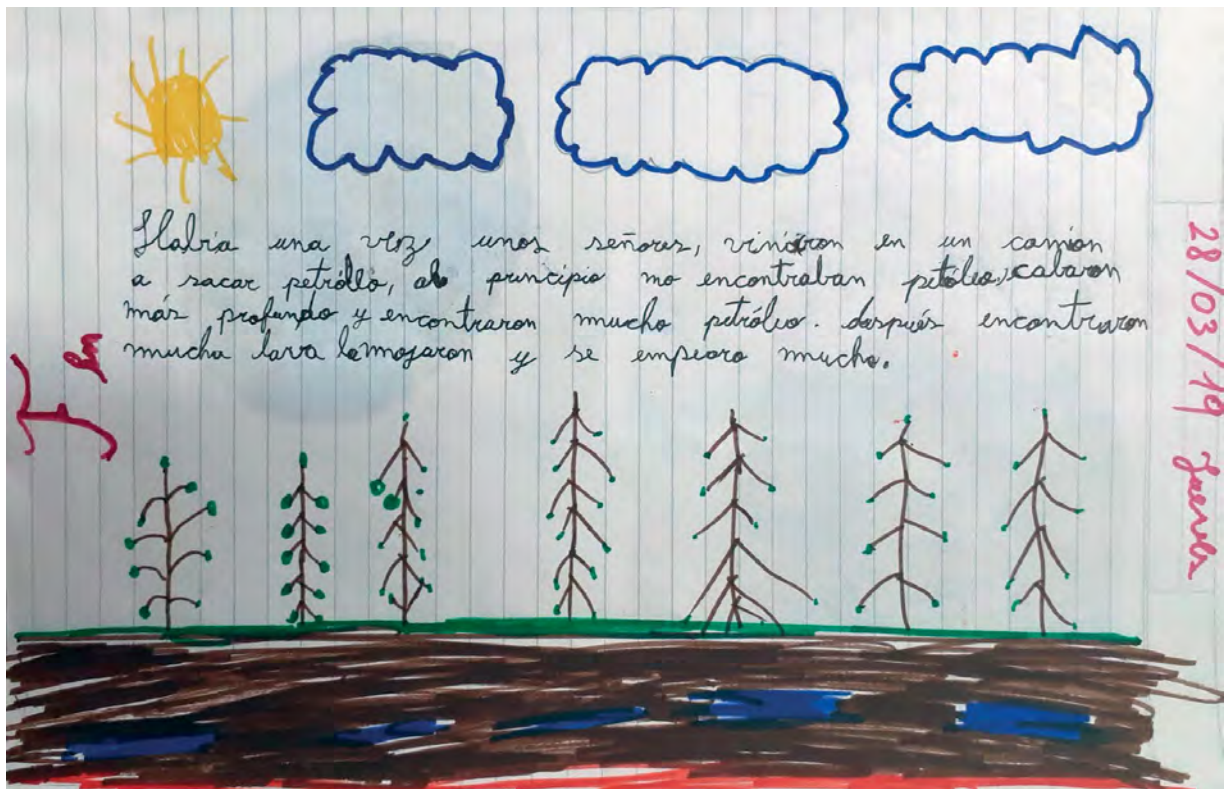 Había una vez unos señores, vinieron en un camión
a sacar petróleo, al principio no encontraban petóleo, cabaron
más profundo y encontraron mucho petróleo. después encontraron
mucha lava la mojaron y se empioro mucho.
28/03/19 Jueves